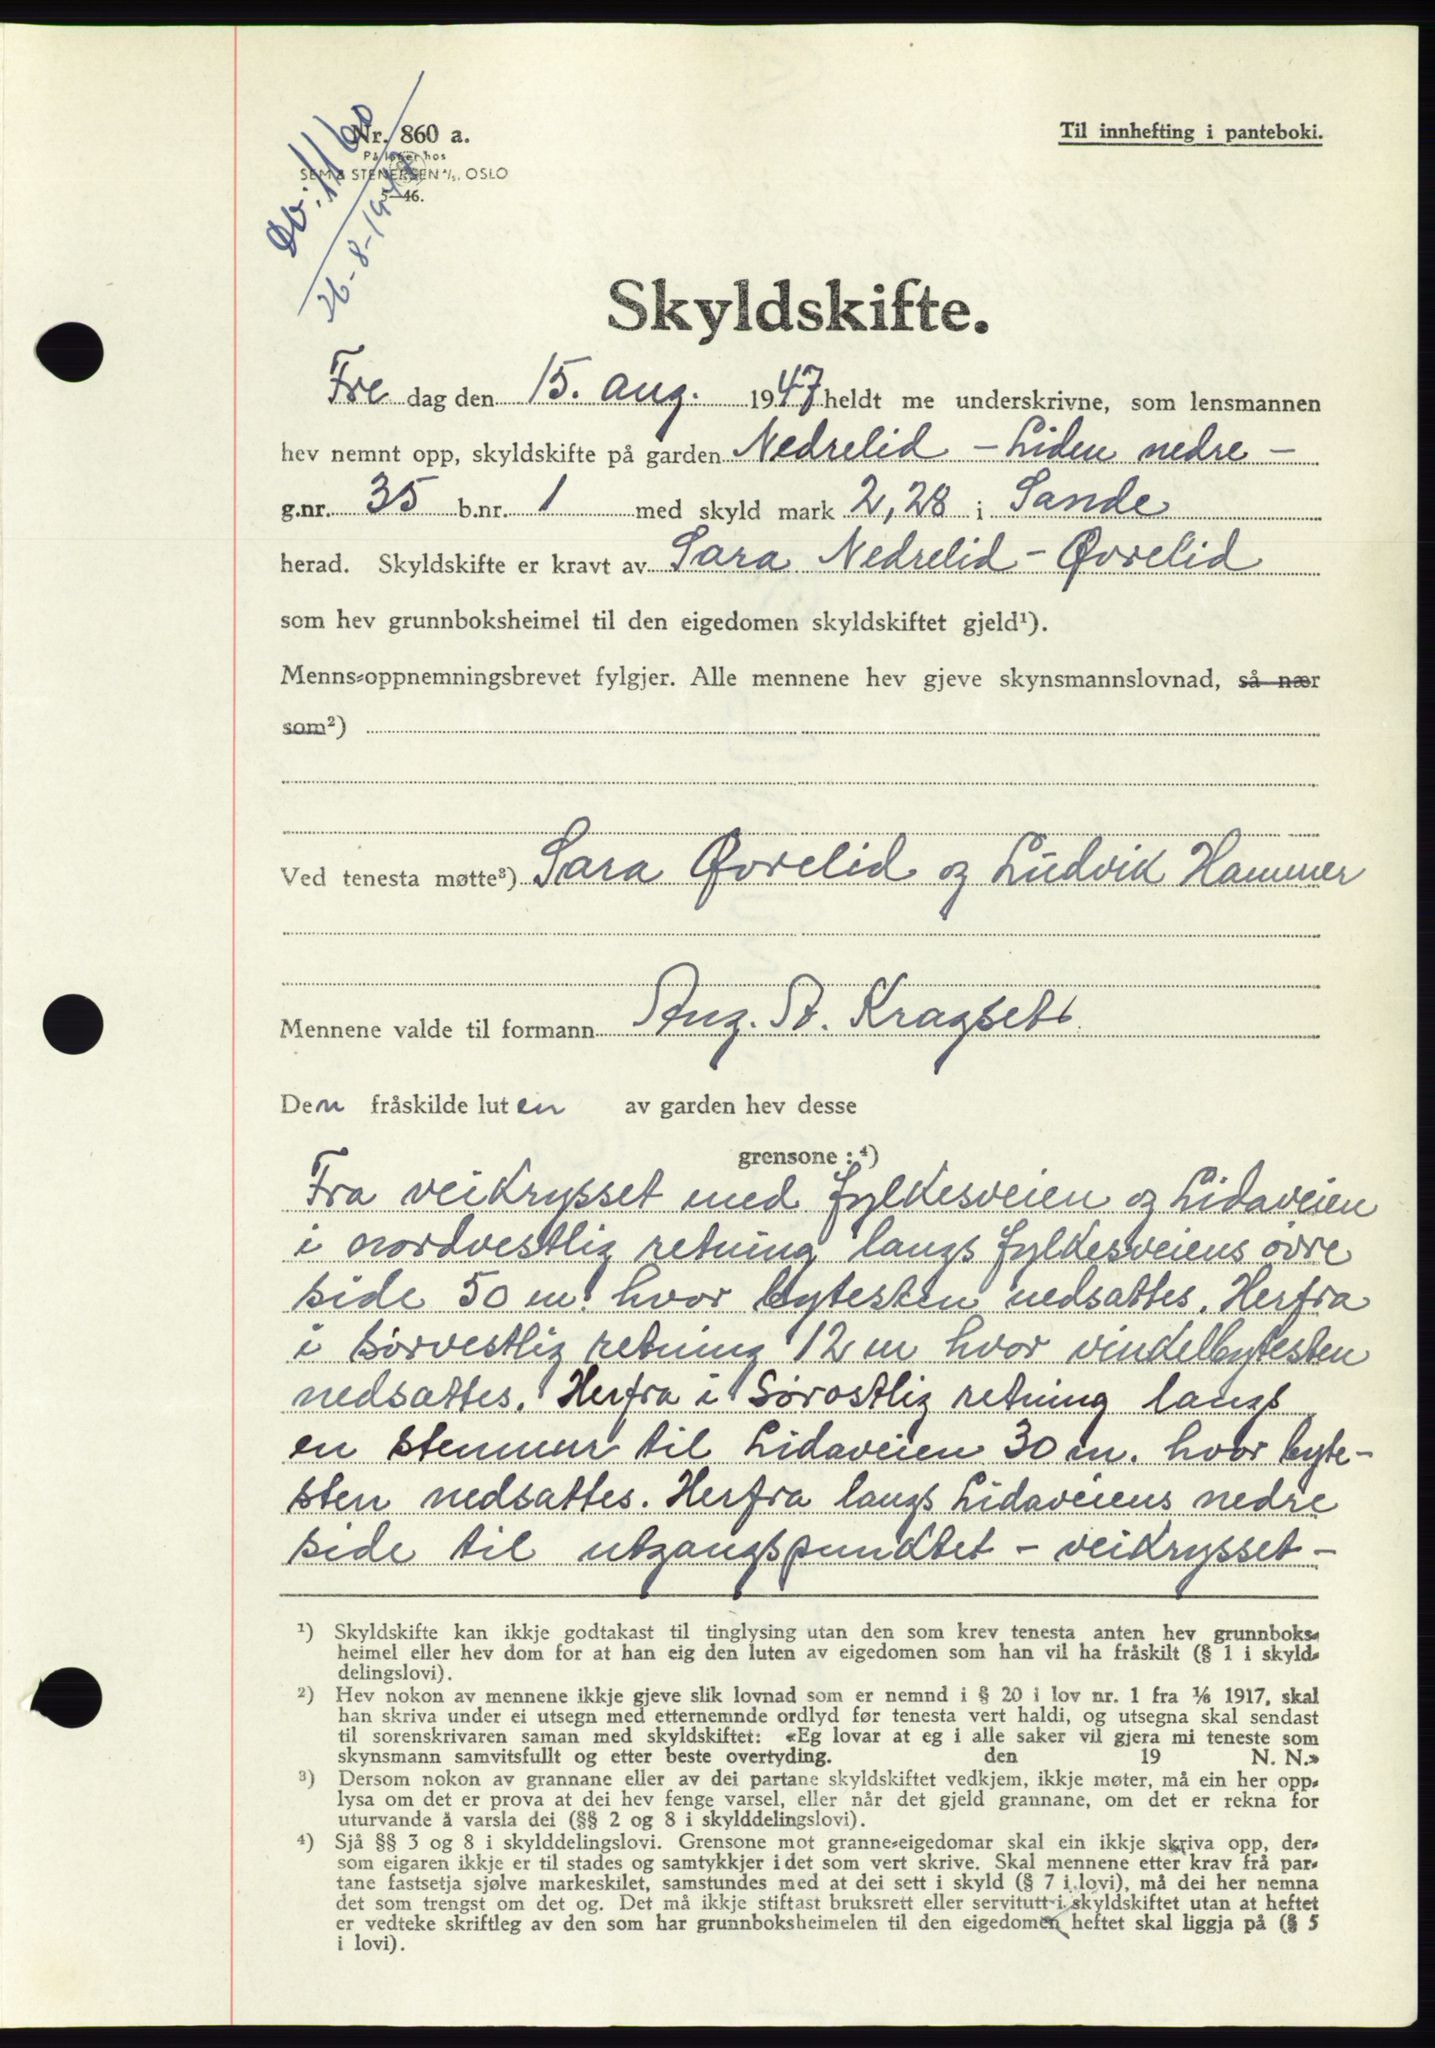 Nr. 860 a.
Til innhefting i panteboki.
På lager hos
SEM & STENERSEN A/S, OSLO
5—46.
1160
26-8-1947
Skyldskifte.
Fre dag den 15. aug. 1947 heldt me underskrivne, som lensmannen
hev nemnt opp, skyldskifte på garden Nedrelid - Liden nedre -
g.nr. 35 b.nr. 1 med skyld mark 2,28 i Sande
herad. Skyldskifte er kravt av Sara Nedrelid - Øvrelid
som hev grunnboksheimel til den eigedomen skyldskiftet gjeld¹).
Menns-oppnemningsbrevet fylgjer. Alle mennene hev gjeve skynsmannslovnad, så nær
som²)
Ved tenesta møtte³) Sara Øvrelid og Ludvik Hammer
Mennene valde til formann Aug. A. Kragset
Den fråskilde luten av garden hev desse
grensone :⁴)
Fra veikrysset med fylkesveien og Lidaveien
i nordvestlig retning langs fylkesveiens øvre
side 50 m. hvor bytesten nedsattes. Herfra
i sørvestlig retning 12 m hvor vinkelbytesten
nedsattes. Herfra i Sørostlig retning langs
en stenmur til Lidaveien 30 m. hvor byte-
sten nedsattes. Herfra langs Lidaveiens nedre
side til utgangspundktet - veikrysset -
¹) Skyldskifte kan ikkje godtakast til tinglysing utan den som krev tenesta anten hev grunnboks-
heimel eller hev dom for at han eig den luten av eigedomen som han vil ha fråskilt (§ 1 i skyld-
delingslovi).
²) Hev nokon av mennene ikkje gjeve slik lovnad som er nemnd i § 20 i lov nr. 1 fra ⅛ 1917, skal
han skriva under ei utsegn med etternemnde ordlyd før tenesta vert haldi, og utsegna skal sendast
til sorenskrivaren saman med skyldskiftet: «Eg lovar at eg i alle saker vil gjera mi teneste som
skynsmann samvitsfullt og etter beste overtyding. den 19 N. N.»
³) Dersom nokon av grannane eller av dei partane skyldskiftet vedkjem, ikkje møter, må ein her opp-
lysa om det er prova at dei hev fenge varsel, eller når det gjeld grannane, om det er rekna for
uturvande å varsla dei (§§ 2 og 8 i skylddelingslovi).
⁴) Sjå §§ 3 og 8 i skylddelingslovi. Grensone mot granne-eigedomar skal ein ikkje skriva opp, der-
som eigaren ikkje er til stades og samtykkjer i det som vert skrive. Skal mennene etter krav frå par-
tane fastsetja sjølve markeskilet, samstundes med at dei sett i skyld (§ 7 i lovi), må dei her nemna
det som trengst om det og. Det må ikkje stiftast bruksrett eller servitutt i skyldskiftet utan at heftet
er vedteke skriftleg av den som har grunnboksheimelen til den eigedomen heftet skal liggja på (§ 5
i lovi).